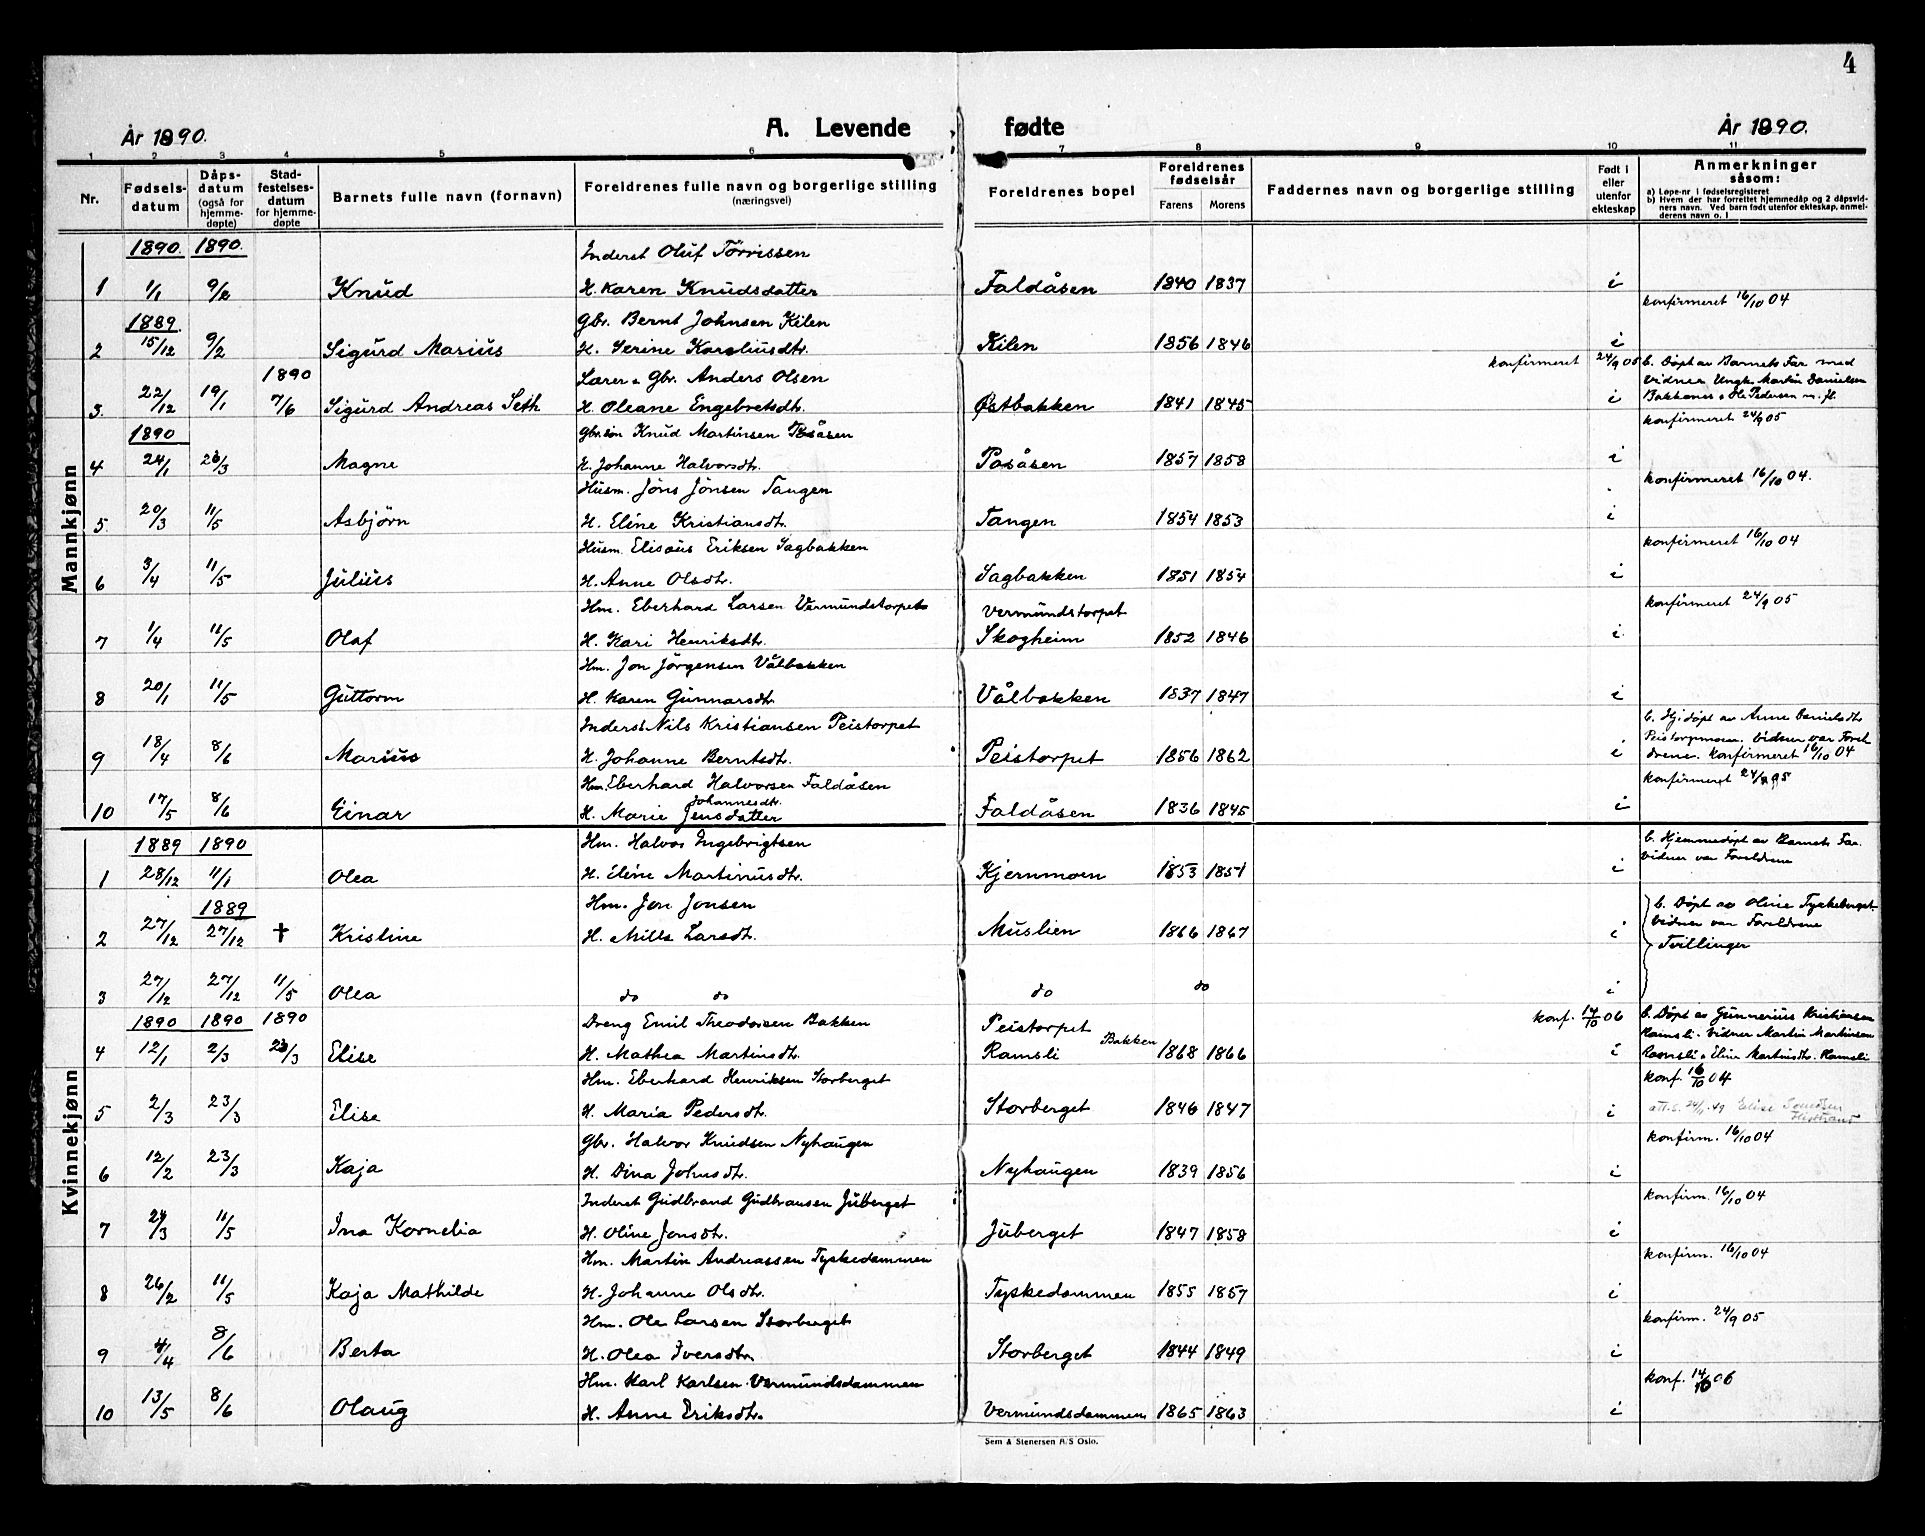 4
År 1890. A. Levende fødte År 1890.
1 2 3 4 5 6 7 8 9 10 11
Nr. Fødsels-datum Dåps-datum (også for hjemme-døpte) Stad-festelses-datum for hjemme-døpte Barnets fulle navn (fornavn) Foreldrenes fulle navn og borgerlige stilling (næringsvei) Foreldrenes bopel Foreldrenes fødselsår Farens Morens Faddernes navn og borgerlige stilling Født i eller utenfor ekteskap Anmerkninger såsom:
a) Løpe-nr. i fødselsregisteret
b) Hvem der har forrettet hjemmedåp og 2 dåpsvid-
ners navn. Ved barn født utenfor ekteskap, anmel-
derens navn o. l
Mannkjønn
1890. 1890. Inderst Oluf Törrissen
1 1/1 9/2 Knud H. Karen Knudsdatter Faldåsen 1840 1837 i
1889. Gbr. Bernt Johnsen Kilen konfirmeret 16/10 04
2 15/12 9/2 Sigurd Marius H. Serine Karoliusdtr. Kilen 1856 1846 i
1890 Lærer & Gbr. Anders Olsen konfirmeret 24/9 05 b. Døpt av Barnets Far med
vidner Ungk. Martin Danielsen
3. 22/12 19/1 7/6 Sigurd Andreas Seth H. Oleane Engebretsdtr. Østbakken 1841 1845 i Bakkenes & Ole Pedersen m. fl.
1890 Gbr.søn Knud Martinsen Posåsen konfirmeret 24/9 05
4 24/1 23/3 Magne H. Johanne Halvorsdtr. Posåsen 1857 1858 i
Husm. Jöns Jönsen Tangen konfirmeret 16/10 04.
5. 20/3 11/5 Asbjörn H. Eline Kristiansdtr. Tangen 1854 1853 i
Husm. Elisæus Eriksen Sagbakken konfirmeret 16/10 04
6 3/4 11/5 Julius H. Anne Olsdtr. Sagbakken 1851 1854 i
Hm. Eberhard Larsen Vermundstorpet Vermundstorpet konfirmeret 24/9 05
7 1/4 11/5 Olaf H. Kari Henriksdtr. Skogheim 1852 1846 i
Hm. Jon Jörgensen Vålbakken
8 20/1 11/5 Guttorm H. Karen Gunnarsdtr. Vålbakken 1837 1847 i
Inderst Nils Kristiansen Peistorpet b. Hj.døpt av Anne Danielsdtr
Peistorpmoen. Vidner var Forel
9 18/4 8/6 Marius H. Johanne Berntsdtr. Peistorpet 1856 1862 i drene. Konfirmeret 16/10 04
Hm. Eberhard Halvorsen Faldåsen konfirmeret 24/9 05
Johannesdtr.
10 17/5 8/6 Einar H. Marie Jensdatter Faldåsen 1836 1845 i
Kvinnekjønn
1889 1890 Hm. Halvor Ingebrigtsen b. Hjemmedøpt av Barnets Far.
vidner var Foreldrene
1 28/12 11/1 Olea H. Eline Martinusdtr. Kjernmoen 1853 1851 i
1889 Hm. Jon Jonsen b. Døpt av Oline Tyskeberget.
2 27/12 27/12 † Kristine H. Milla Larsdtr. Muslien 1866 1867 i vidner var Foreldrene
Tvillinger
3 27/12 27/12 11/5 Olea do do do do i
1890 1890 1890 Dreng Emil Theodorsen Bakken Peistorpet konf. 14/10 06 b. Døpt av Gunnerius Kristiansen
Bakken Ramsli. Vidner Martin Martinsen
4 12/1 2/3 23/3 Elise H. Mathea Martinsdtr. Ramsli 1868 1866 i Ramsli & Eline Martinsdtr. Ramsli
Hm. Eberhard Henriksen Storberget konf. 16/10 04
5 2/3 23/3 Elise H. Maria Pedersdtr. Storberget 1846 1847 i att.s. 24/1.49 Elise
Gbr. Halvor Knudsen Nyhaugen konfirm. 16/10 04
6 12/2 23/3 Kaja H. Dina Johnsdtr. Nyhaugen 1839 1856 i
Inderst Gudbrand Gudbransen Juberget konfirm. 16/10 04
7 24/3 11/5 Ina Kornelia H. Oline Jonsdtr. Juberget 1847 1858 i
Hm. Martin Andreassen Tyskedammen konfirm. 16/10 04
8 26/2 11/5 Kaja Mathilde H. Johanne Olsdtr. Tyskedammen 1855 1857 i
Hm. Ole Larsen Storberget konfirm. 24/9 05
9 4/4 8/6 Berta H. Olea Iversdtr. Storberget 1844 1849 i
Hm. Karl Karlsen Vermundsdammen konf. 14/10 06
10 13/5 8/6 Olaug H. Anne Eriksdtr. Vermundsdammen 1865 1863 i
Sem & Stenersen A/S Oslo.